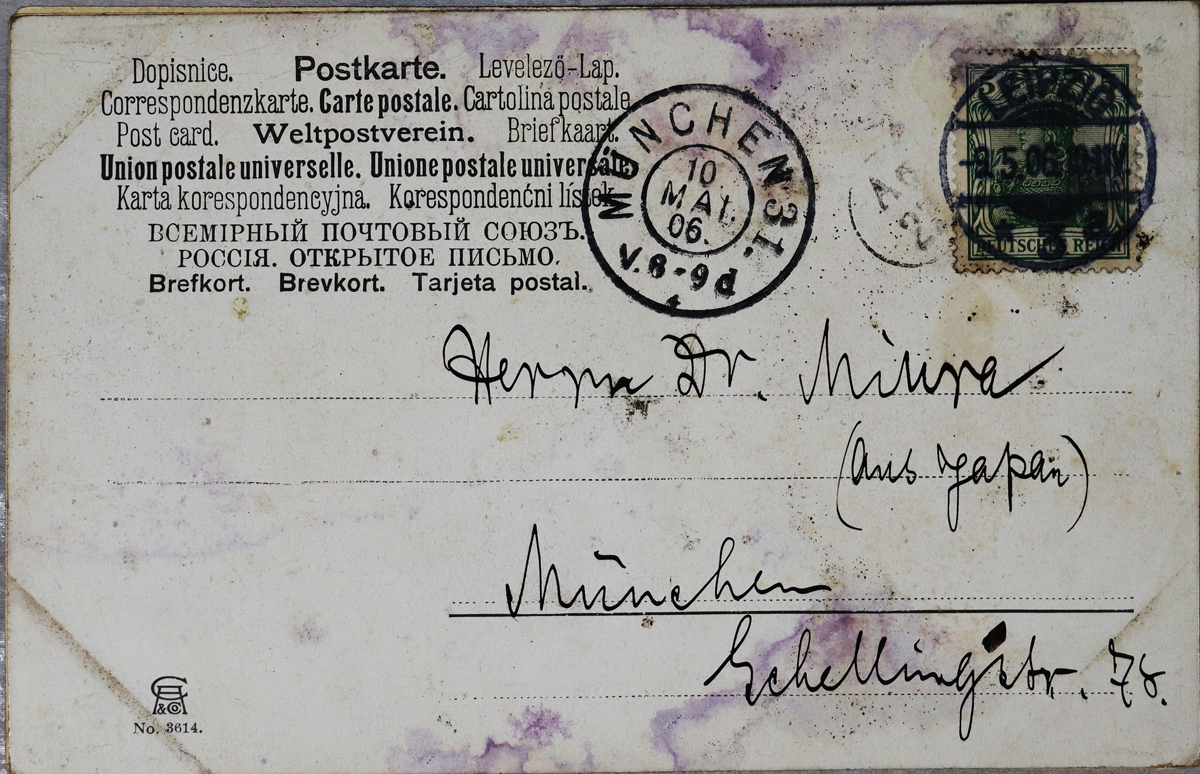 Dopisnice. Postkarte. Levelező-Lap.
Correspondenzkarte. Carte postale. Cartolina postale
Post card. Weltpostverein. Briefkaart.
Union postale universelle. Unione postale universale
Karta korespondencyjna. Korespondenćni lístek
ВСЕМІРНЫЙ ПОЧТОВЫЙ СОЮЗЪ.
РОССІЯ. ОТКРЫТОЕ ПИСЬМО.
Brefkort. Brevkort. Tarjeta postal.
MÜNCHEN 31.
10
MAI.
06.
V. 8-9 d
LEIPZIG
DEUTSCHES REICH
Herrn Dr. Miura
(aus Japan)
München
Schellingstr. 78.
A & Co
No. 3614.